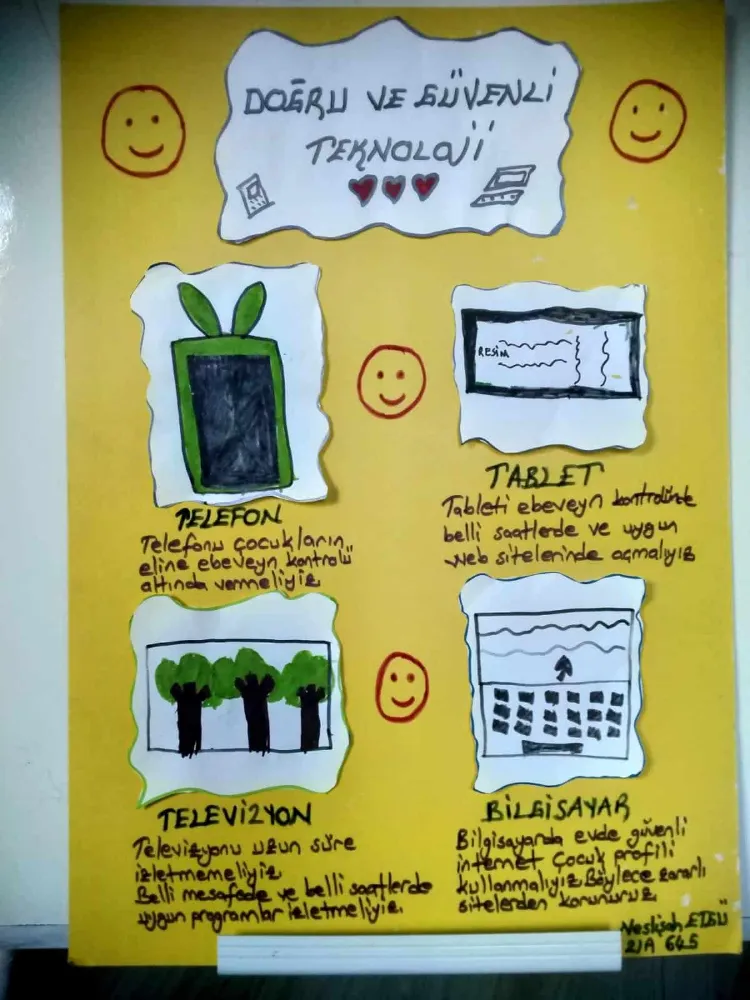 DOĞRU VE GÜVENLİ
TEKNOLOJİ
TELEFON
Telefonu çocukların
eline ebeveyn kontrolü
altında vermeliyiz
RESİM
TABLET
Tableti ebeveyn kontrolünde
belli saatlerde ve uygun
web sitelerinde açmalıyız
TELEVİZYON
Televizyonu uzun süre
izletmemeliyiz
Belli mesafede ve belli saatlerde
uygun programlar izletmeliyiz.
BİLGİSAYAR
Bilgisayarda evde güvenli
internet Çocuk profili
kullanmalıyız. Böylece zararlı
sitelerden korunuruz
21A 645